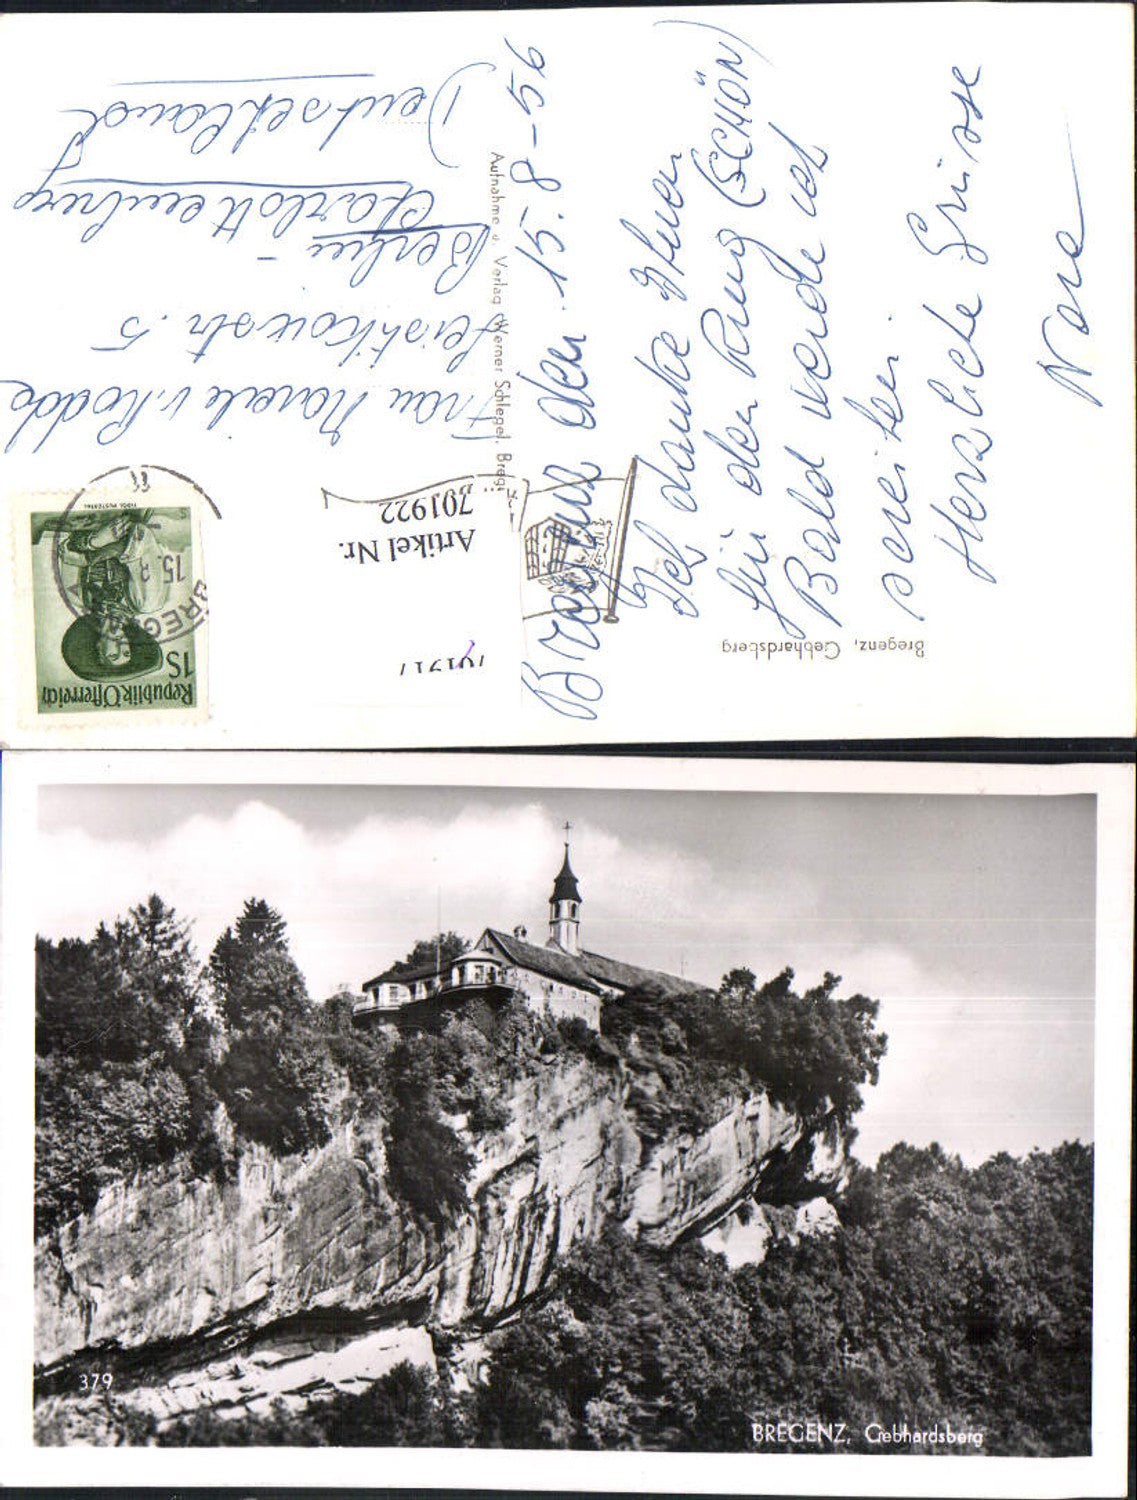 Bregenz den 15.8-56
Ich danke Ihnen
für den Ring (SCHÖN)
Bald werde ich
screiben.
Herzliche Grüsse
Nora
Frau
v. Rodde
str. 5
Berlin -
Charlottenburg
Deutschland
Bregenz, Gebhardsberg
Aufnahme u. Verlag Werner Schlegel, Breg
Artikel Nr.
701922
Republik Österreich
1S
BREG
15. 8
379
BREGENZ, Gebhardsberg